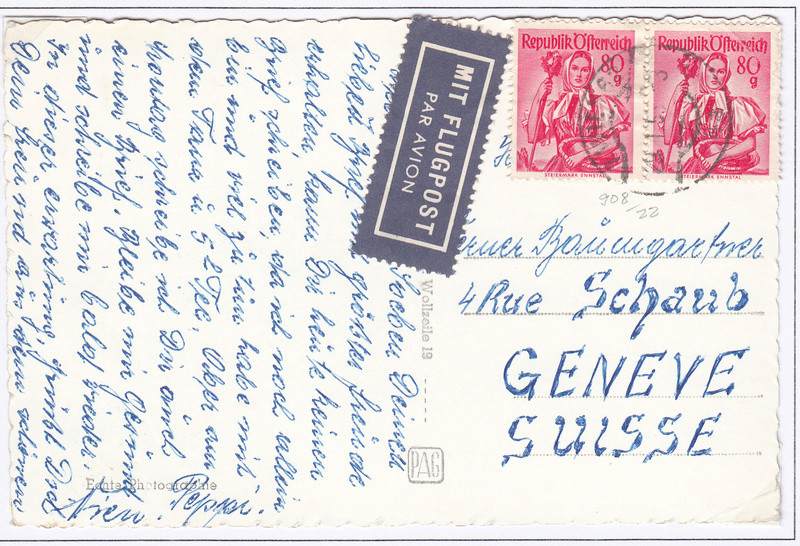 Soeben Deinen
lieben Brief grösster Freude
erhalten, kann Dir heute keinen
Brief schreiben, da ich noch allein
bin und viel zu tun habe mit
dem Tanz u. Tee. Aber am
Montag schreibe ich Dir auch
einen Brief. Bleibe mir gesund
und schreibe mir bald wieder
In dieser Erwartung grüsst Dich
Dein Freund aus dem schönen
Wien. Peppi.
MIT FLUGPOST
PAR AVION
Republik Österreich
80
g
STEIERMARK ENNSTAL
Republik Österreich
80
g
STEIERMARK ENNSTAL
908
22
Baumgartner
4 Rue Schaub
GENEVE
SUISSE
Wollzeile 19
PAG
Echte Photographie